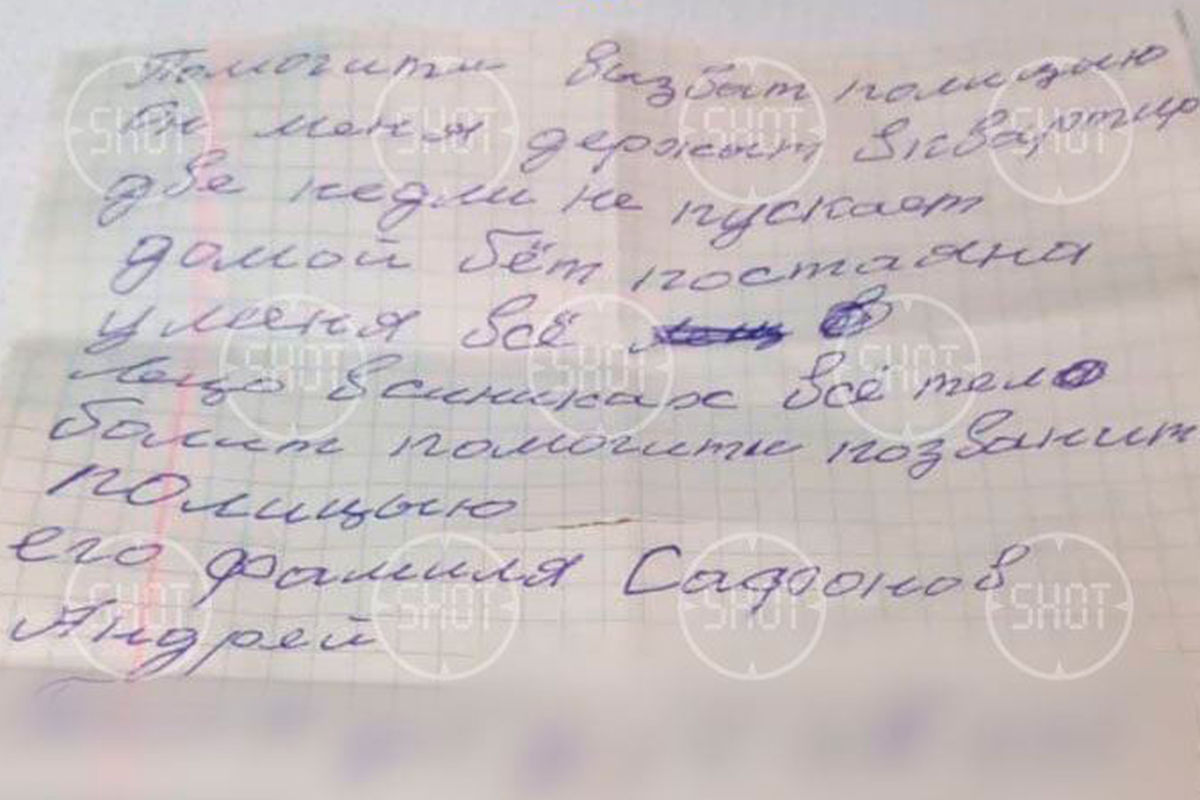 Помогити вызвыт полицыю
Он меня держыт в кварти
две недли не пускает
домой бёт постаяна
у меня всё в
Лецо в синиках всё тело
болит помогити позванит
полицыю
его фамиля Сафронов
Андрей
SHOT SHOT SHOT SHOT
SHOT SHOT SHOT
SHOT SHOT SHOT SHOT